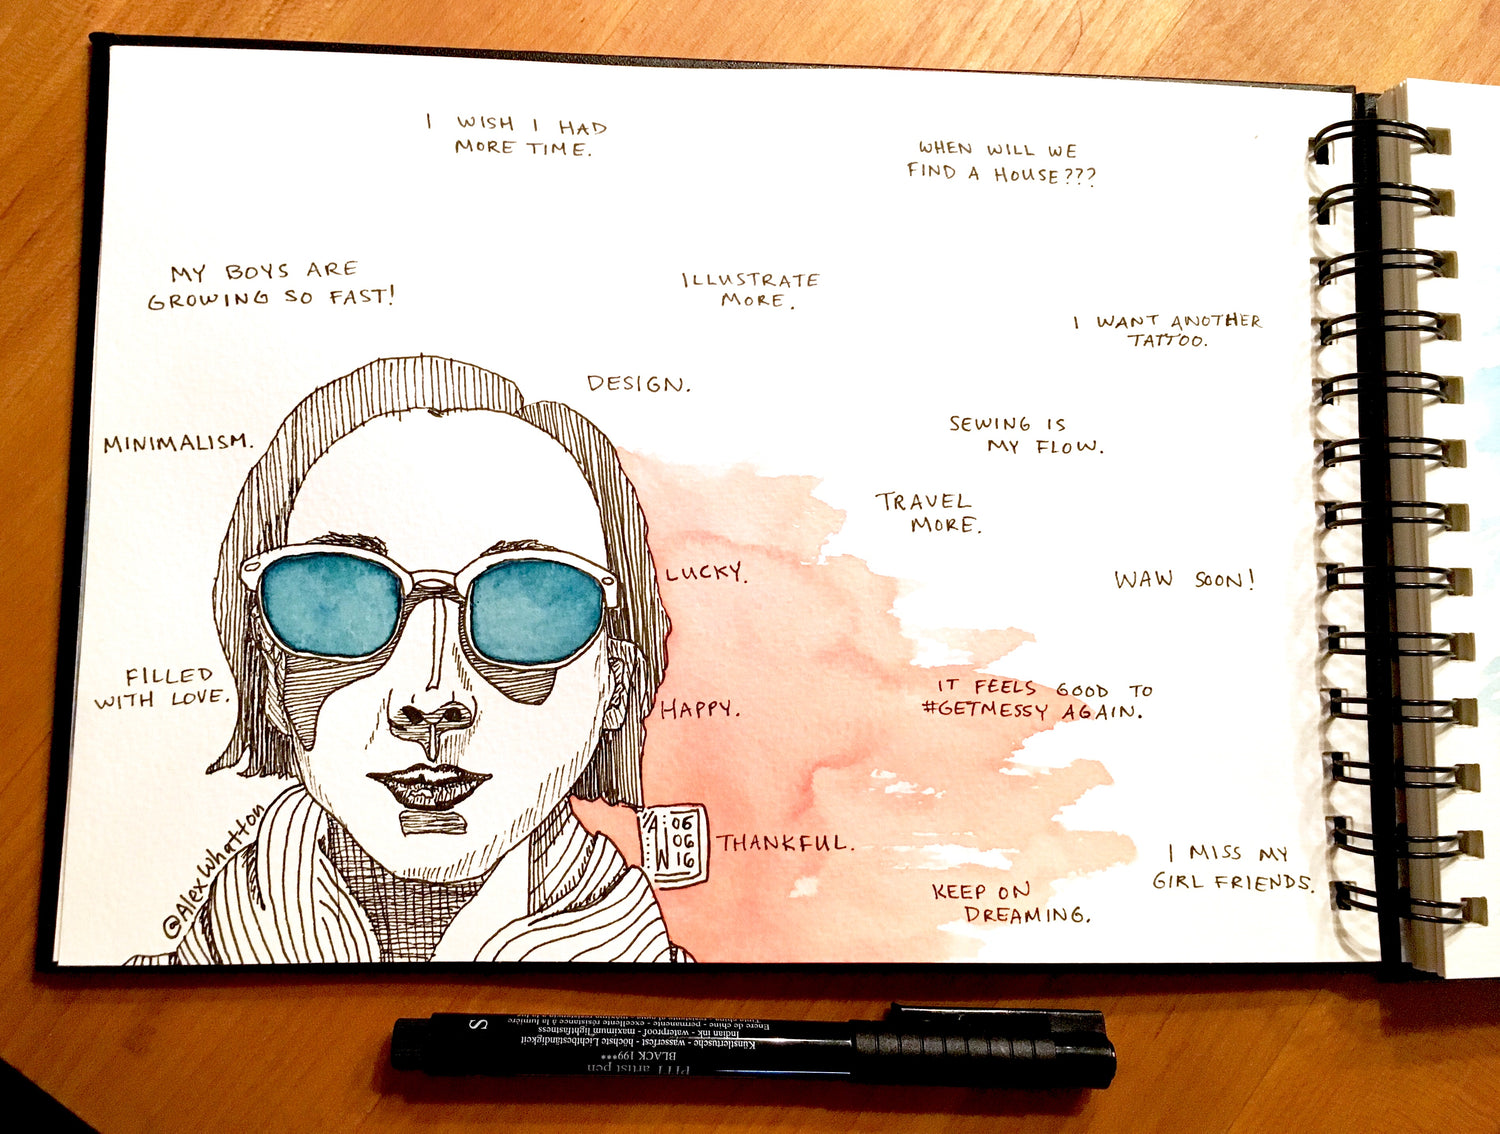 I WISH I HAD
MORE TIME.
WHEN WILL WE
FIND A HOUSE???
MY BOYS ARE
GROWING SO FAST!
ILLUSTRATE
MORE.
I WANT ANOTHER
TATTOO.
DESIGN.
MINIMALISM.
SEWING IS
MY FLOW.
TRAVEL
MORE.
LUCKY.
WAW SOON!
FILLED
WITH LOVE.
HAPPY.
IT FEELS GOOD TO
#GETMESSY AGAIN.
@AlexWhatton
A 06
06
W 16
THANKFUL.
I MISS MY
GIRL FRIENDS.
KEEP ON
DREAMING.
S
PITT artist pen
BLACK 199***
Künstlertusche - wasserfest - höchste Lichtbeständigkeit
Indian ink - waterproof - maximum lightfastness
Encre de chine - permanente - excellente résistance à la lumière